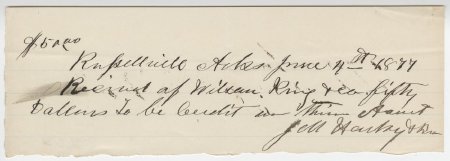 $50.00
Russellville Arks June 4th 1877
Recieved of Wilson King & Co fifty
Dallars to be Credit on thier Acount
J M Harkey &